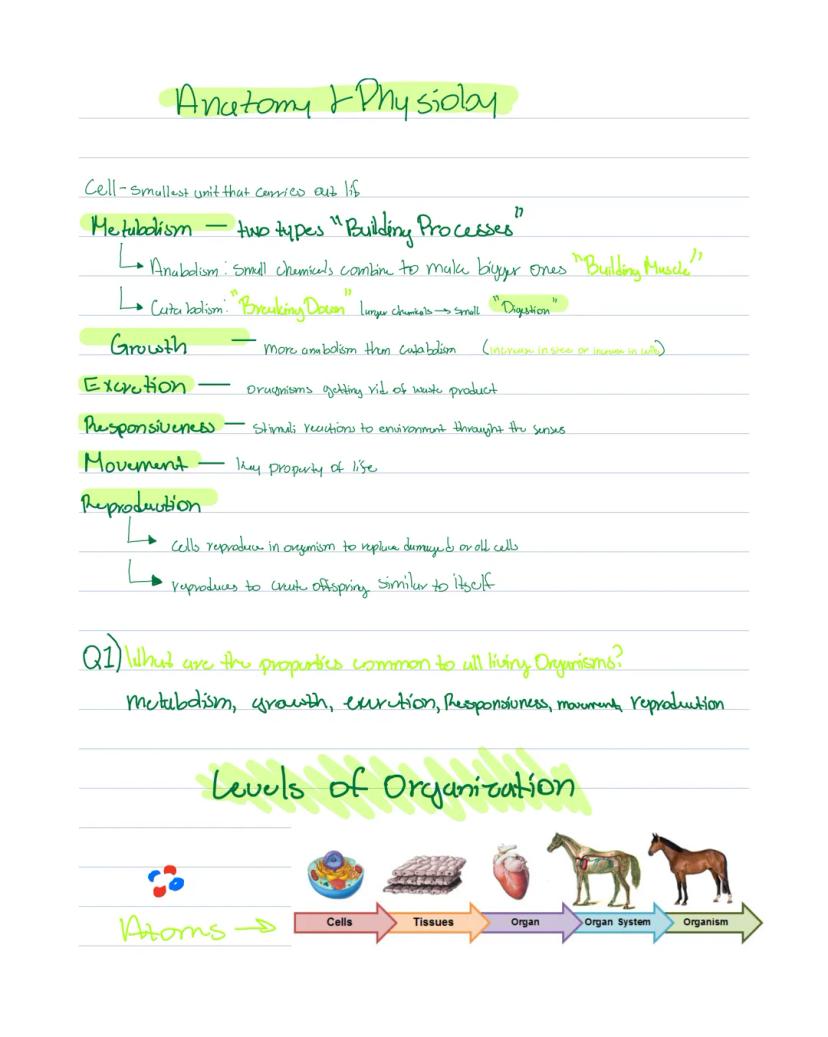 Anatomy + Physioloy
Cell - smallest unit that carries out life
Metabolism — two types "Building Processes"
Anabolism: small chemicals combine to make bigger ones "Building Muscle"
Catabolism: "Breaking Down" larger chemicals → small "Digestion"
Growth — More anabolism then catabolism (increase in size or increase in cells)
Excretion — Oragnisms getting rid of waste product
Responsiveness — Stimuli reactions to environment throught the senses
Movement — key property of life
Reproduction
Cells reproduce in organism to replace damaged or old cells
reproduces to create offspring similar to itself
Q1) What are the properties common to all living Organisms?
metabolism, growth, excretion, Responsiveness, movement, reproduction
Levels of Organization
Atoms → Cells Tissues Organ Organ System Organism